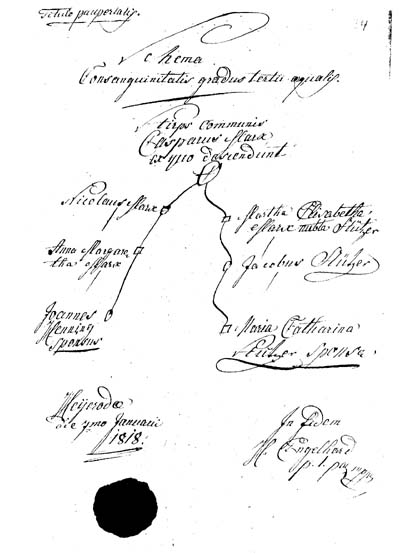 Titulo paupertatis.
Schema
Consanguinitatis gradus tertii aequalis.
Stirps communis
Casparus Marx
ex quo descendunt
Nicolaus Marx
Martha Elizabetha
Marx nubta Stützer
Anna Margare
tha Marx
Jacobus Stützer
Joannes
Henning
sponsus
Maria Catharina
Stützer sponsa
Heyerodae
die Januarii
1818.
In fidem
H. Engelhard
p. t.